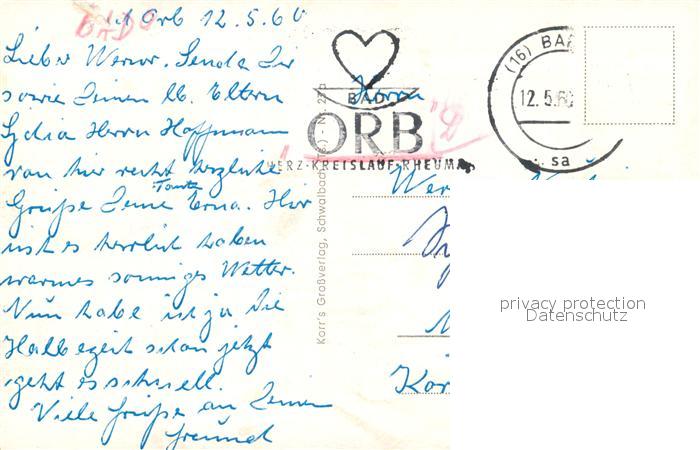 Bad Orb 12.5.60
Lieber Werner. Sende Dir
sowie Deinen lb. Eltern
Lydia Herrn Hoffmann
von hier recht herzliche
Grüße Deine Tante Erna. Hier
ist es herrlich haben
warmes sonniges Wetter.
Nun habe ich ja die
Halbezeit schon jetzt
geht es schnell.
Viele Grüße an Deinen
Freund
BAD
BAD
ORB
HERZ·KREISLAUF·RHEUMA
(16) BAD
12.5.60
sa
Herrn
Wer
Kör
Korr's Großverlag, Schwalbach
privacy protection
Datenschutz